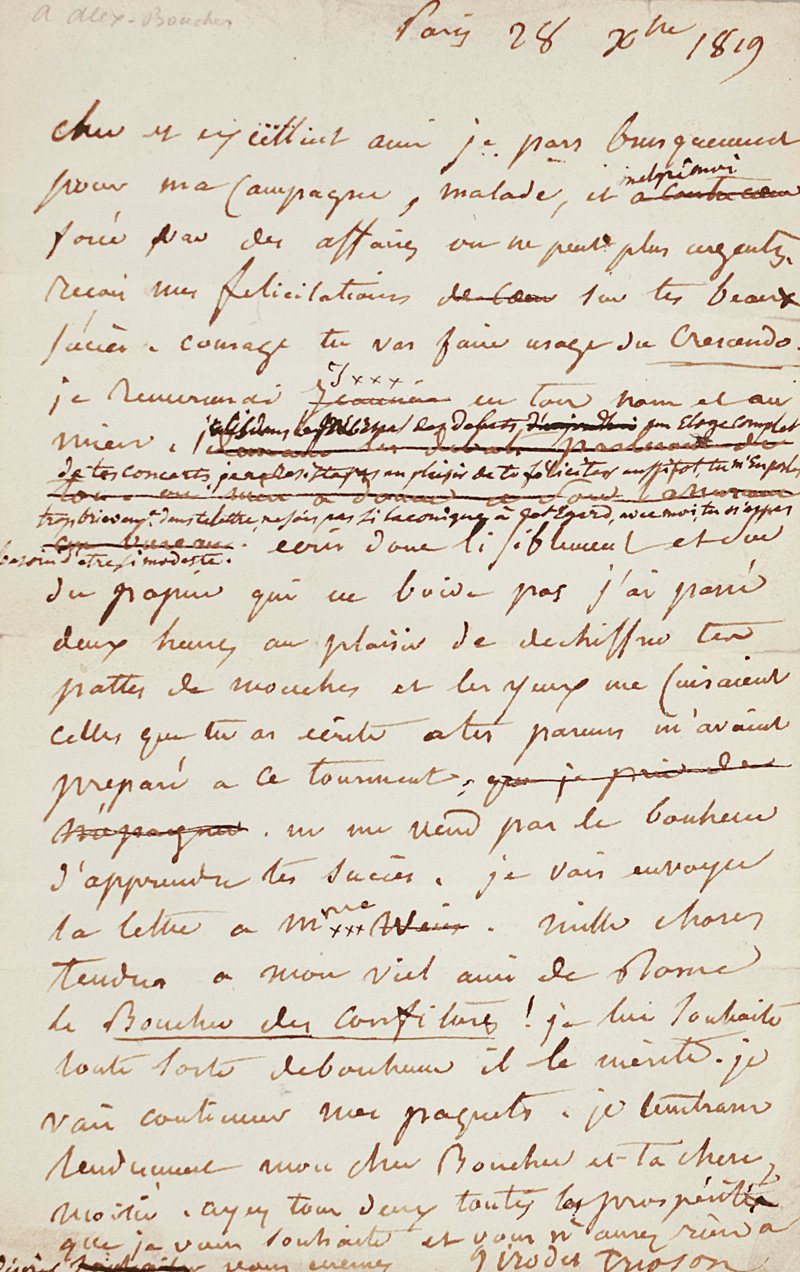 a alex-Boucher
Paris 28 Xbre 1819
cher et excellent ami je pars brusquement
pour ma Campagne, malade, et malgré moi a contre coeur
forcé par des affaires on ne peut plus urgentes.
reçois mes felicitations de coeur sur tes beaux
succès. courage tu vas faire usage du Crescendo.
je remercierai J×××× en ton nom et au
mien. j'ai lu dans le des debats, un Eloge complet
de tes concerts, je ne resiste pas au plaisir de te feliciter aussitot, tu m'en parles
tres brievemt. dans ta lettre, ne sois pas si laconique à cet Egard, avec moi, tu n'as pas
besoin d'etre si modeste.
au bureau. ecris donc lisiblement et sur
du papier qui ne boive pas j'ai passé
deux heures au plaisir de dechiffrer tes
pattes de mouches et les yeux me cuisaient
celles que tu as ecrite a tes parens m'avaient
preparé a ce tourment, que je prie de
m'épargner. ne me vend pas le bonheur
d'apprendre tes succès. je vais envoyer
la lettre a Mme ××× . mille choses
tendres a mon viel ami de Rome
le Boucher des confitures! je lui souhaite
toute sorte de bonheur il le mérite. je
vais continuer mes paquets. je t'embrasse
tendrement mon cher Boucher et ta chere
moitié. ayez tous deux toutes les prospérités
que je vous souhaite et vous n'aurez rien a
désirer vous memes Girodet Trioson